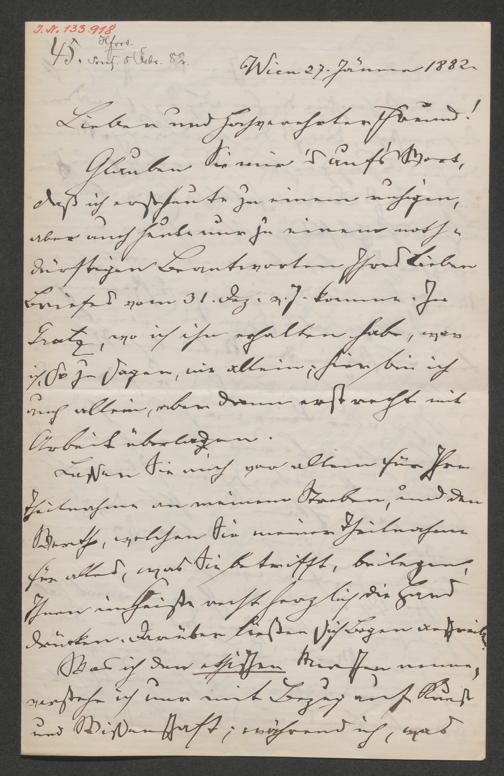 J. N. 133.918
45.
Wien 27. Jänner 1882.
Lieber und hochverehrter Freund!
Glauben Sie mir's auf's Wort,
daß ich erst heute zu einem ruhigen,
aber auch heute nur zu einem noth-
dürftigen Beantworten Ihres lieben
Briefes vom 31. Dez. v. J. komme. In
Gratz, wo ich ihn erhalten habe, war
ich, so zu sagen, nie allein; hier bin ich
auch allein, aber dann erst recht mit
Arbeit überladen.
Lassen Sie mich vor allem für Ihre
Theilnahme an meinem Streben, und den
Werth, welchen Sie meiner Theilnahme
für alles, was Sie betrifft, beilegen,
Ihnen im Geiste recht herzlich die Hand
drücken. Darüber ließen sich Bogen
Was ich den nenne,
verstehe ich nur mit Bezug auf Kunst
und Wissenschaft; während ich, was